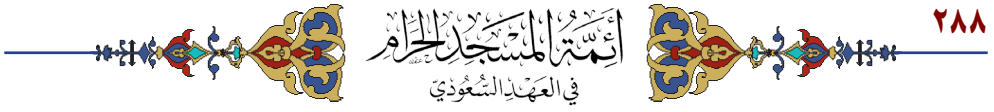 ٢٨٨
أَئِمَّةُ المَسْجِدِ الحَرَامِ
في العَهْدِ السُّعُودِيّ